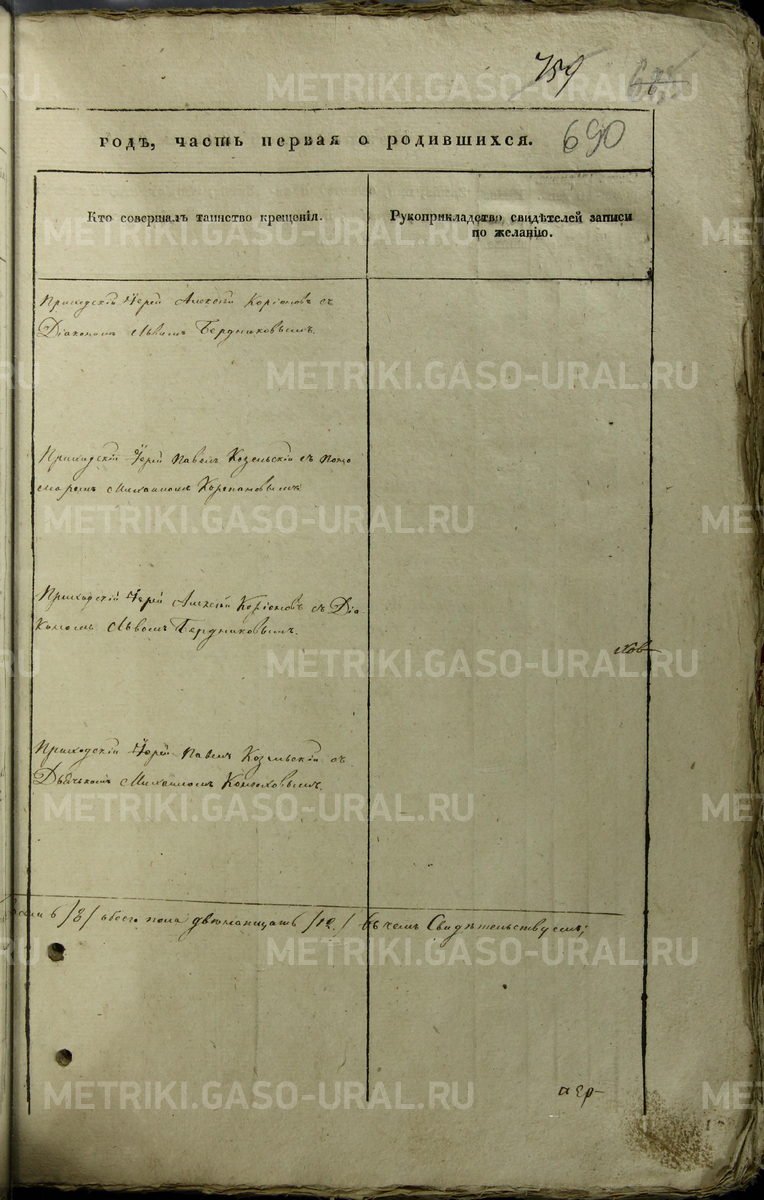 759
690
годъ, часть первая о родившихся.
Кто совершалъ таинство крещенія.
Рукоприкладство свидѣтелей записи
по желанію.
Приходскій Іерей Алексѣй Коріоновъ съ
Діакономъ Львомъ Бердниковымъ.
Приходскій Іерей Павелъ Козельскій съ поно
маремъ Михаиломъ
Приходскій Іерей Алексѣй Коріоновъ съ Діа
кономъ Львомъ Бердниковымъ.
Приходскій Іерей Павелъ Козельскій съ
Дьячькомъ Михаиломъ
/8/ обоего пола двѣнатцать /12/ въ чемъ Свидѣтельствуемъ;
METRIKI.GASO-URAL.RU
METRIKI.GASO-URAL.RU
METRIKI.GASO-URAL.RU
METRIKI.GASO-URAL.RU
METRIKI.GASO-URAL.RU
METRIKI.GASO-URAL.RU
METRIKI.GASO-URAL.RU
METRIKI.GASO-URAL.RU